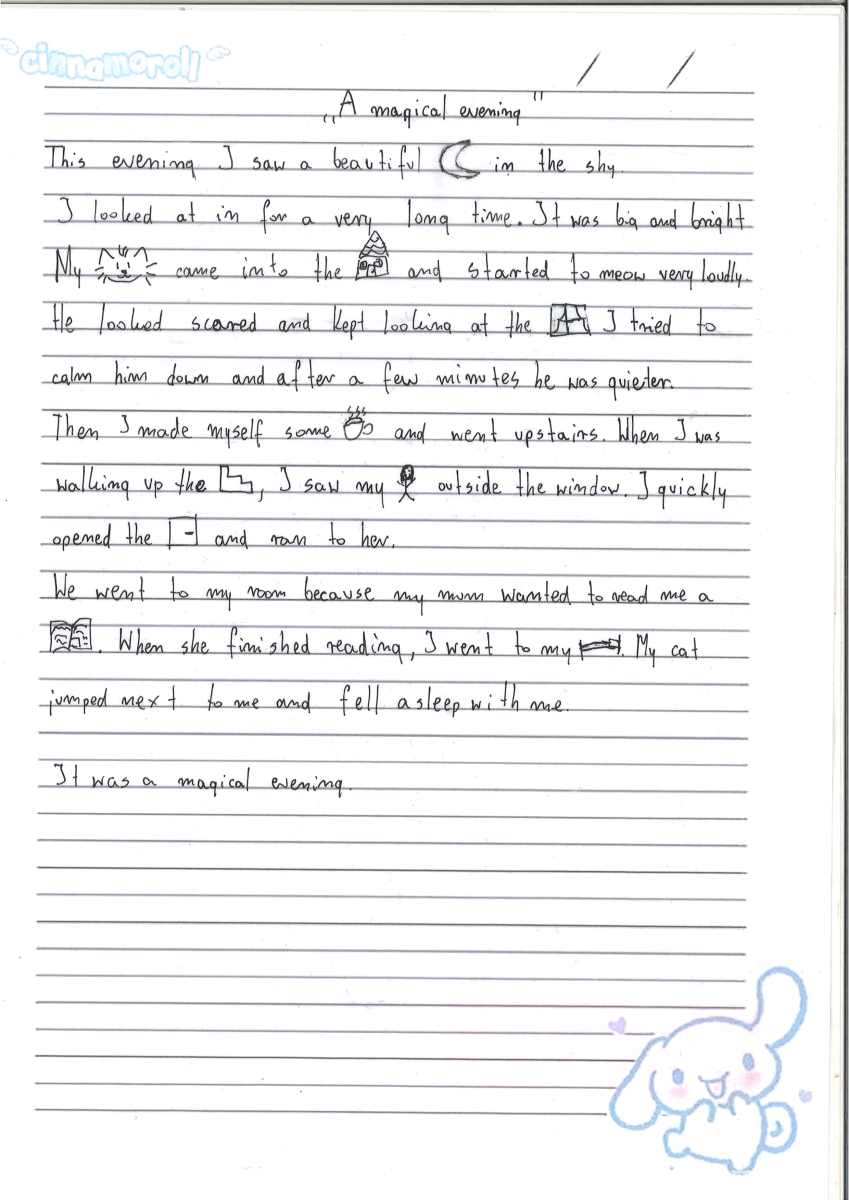 cinnamoroll
/ /
„A magical evening"
This evening I saw a beautiful in the shy.
I looked at in for a very long time. It was big and bright
My came into the and started to meow very loudly.
He looked scared and kept looking at the I tried to
calm him down and after a few minutes he was quieter.
Then I made myself some and went upstairs. When I was
walking up the , I saw my outside the window. I quickly
opened the and ran to her.
We went to my room because my mum wanted to read me a
. When she finished reading, I went to my . My cat
jumped next to me and fell asleep with me.
It was a magical evening.